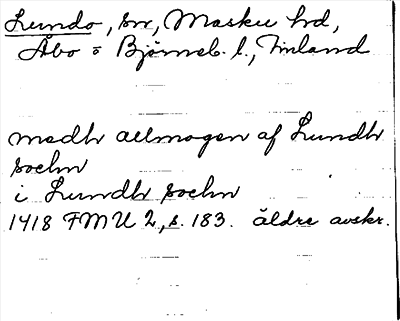 Lundo, sn, Masku hd,
Åbo o Björneb. l., Finland
medh allmogen af Lundh
sochn
i Lundh sochn
1418 FMU 2, s. 183. äldre avskr.